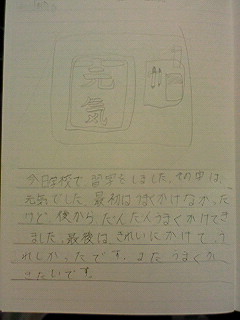 元
気
今日学校で、習字をしました。
元気でした。最初はうまくかけなかった
けど、後からだんだんうまくかけてき
ました。最後は、きれいにかけて、う
れしかったです。またうまくか
きたいです。